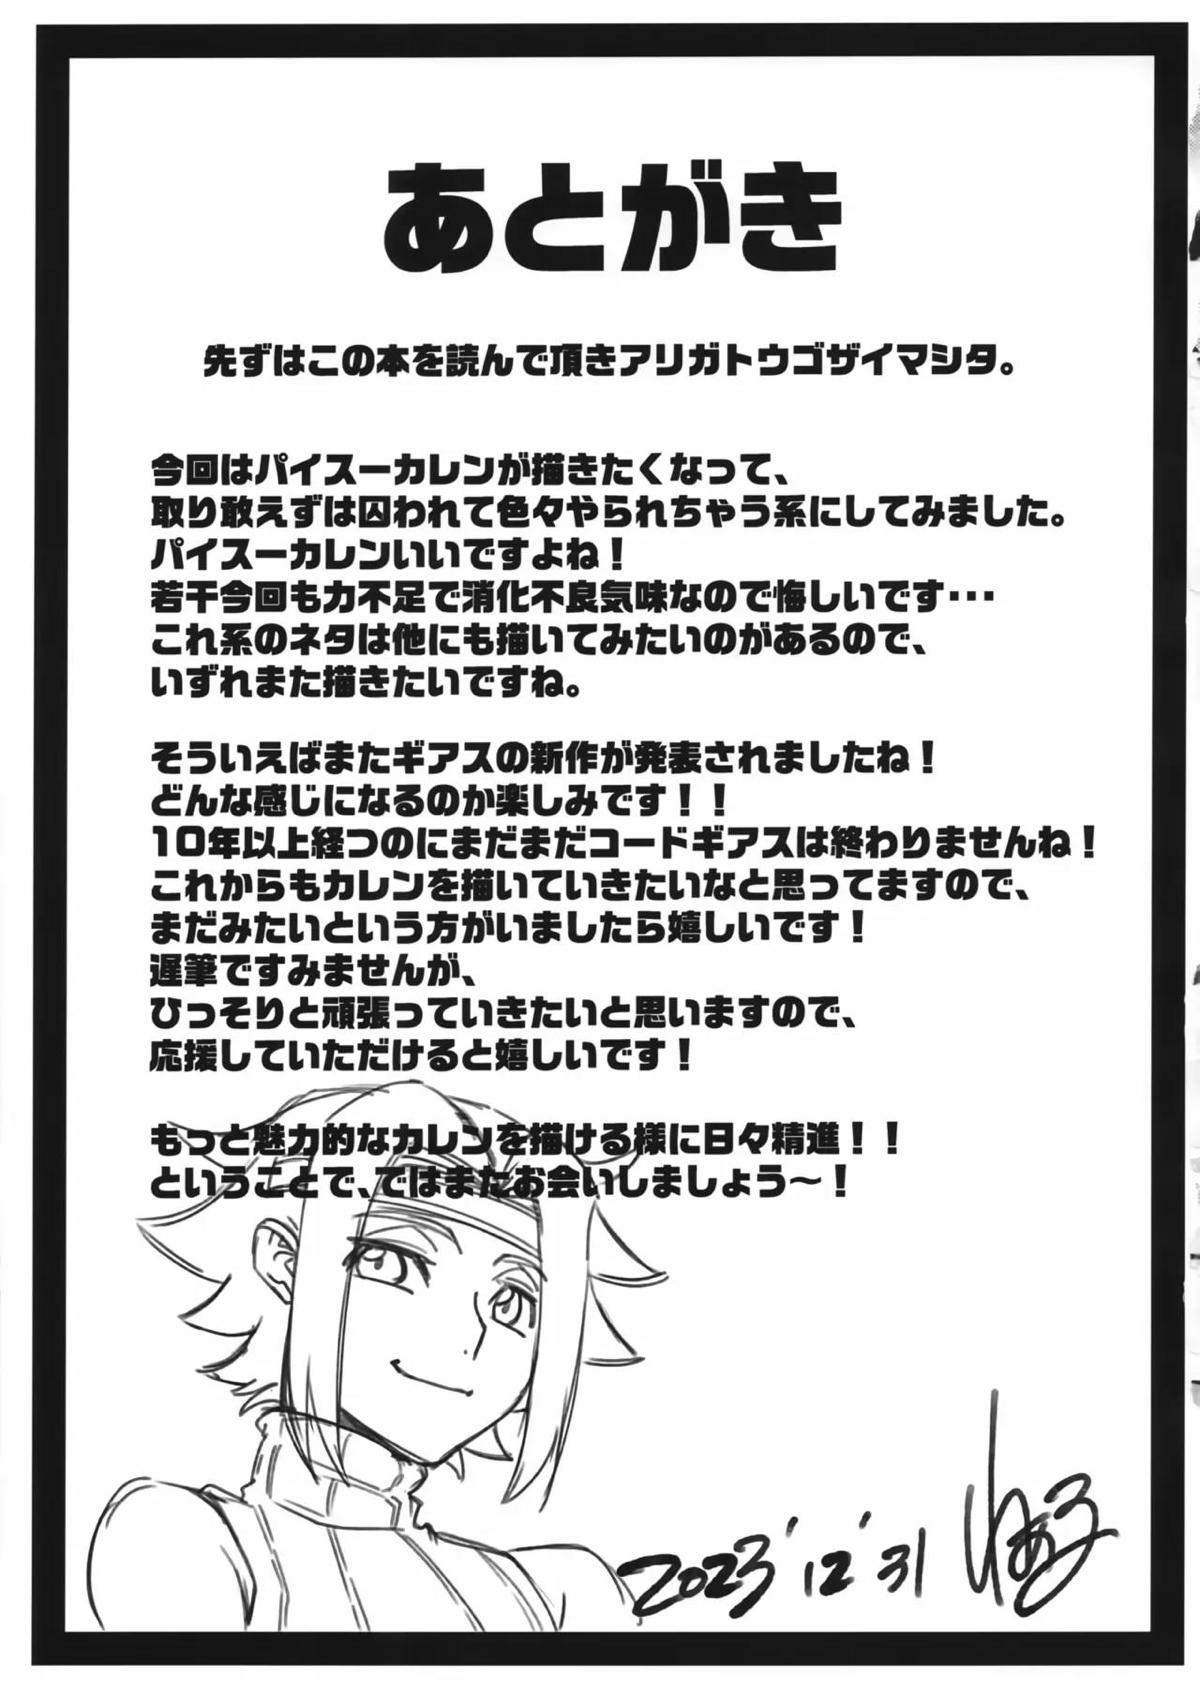 あとがき
先ずはこの本を読んで頂きアリガトウゴザイマシタ。
今回はパイスーカレンが描きたくなって、
取り敢えずは囚われて色々やられちゃう系にしてみました。
パイスーカレンいいですよね！
若干今回も力不足で消化不良気味なので悔しいです・・・
これ系のネタは他にも描いてみたいのがあるので、
いずれまた描きたいですね。
そういえばまたギアスの新作が発表されましたね！
どんな感じになるのか楽しみです！！
10年以上経つのにまだまだコードギアスは終わりませんね！
これからもカレンを描いていきたいなと思ってますので、
まだみたいという方がいましたら嬉しいです！
遅筆ですみませんが、
ひっそりと頑張っていきたいと思いますので、
応援していただけると嬉しいです！
もっと魅力的なカレンを描ける様に日々精進！！
ということで、ではまたお会いしましょう～！
2023'12'31